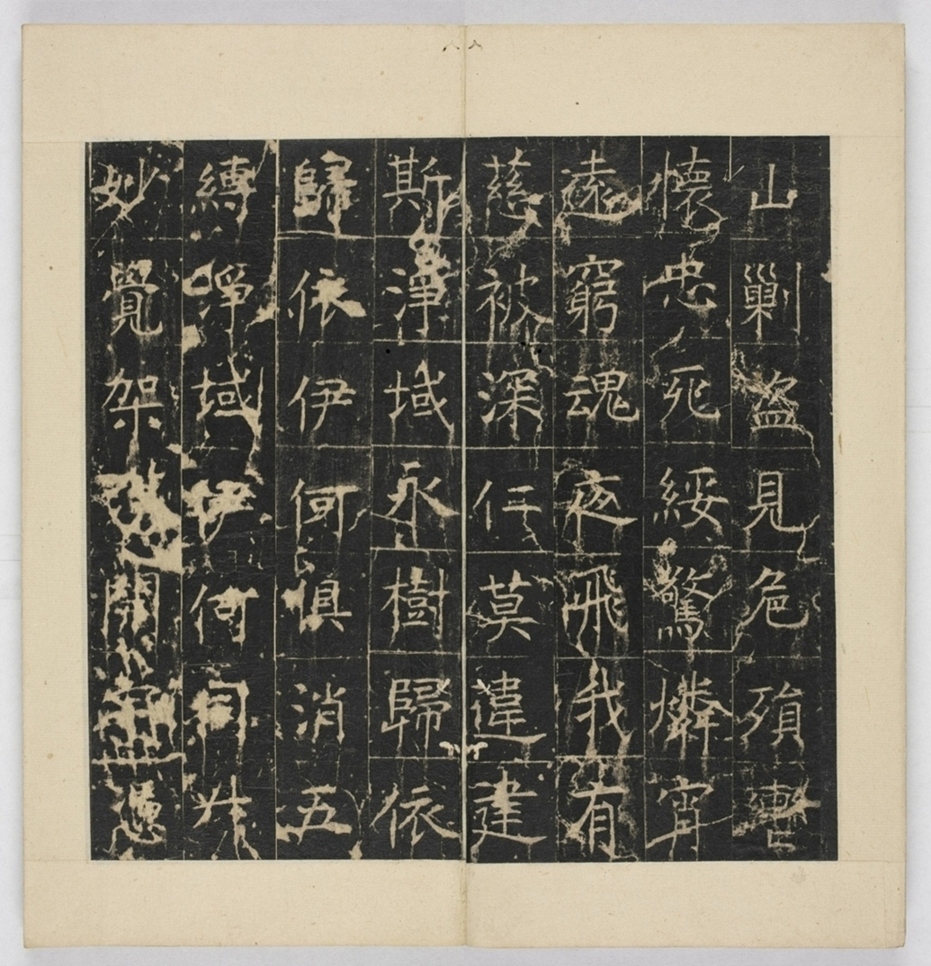 山剿盗見危殞轡
懷忠死綏驚燐宵
遠窮魂夜飛我有
慈被深仁莫違建
斯淨域永樹歸依
歸依伊何俱消五
縛淨域伊何同升
妙覺架開憑